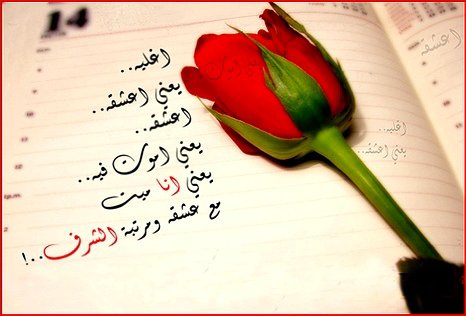 14
اغليه..
يعني اعشقه..
اعشقه..
يعني اموت فيه..
يعني انا ميت
مع عشقه ومرتبة الشرف..!
اعشقه
اغليه..
يعني اعشقه..